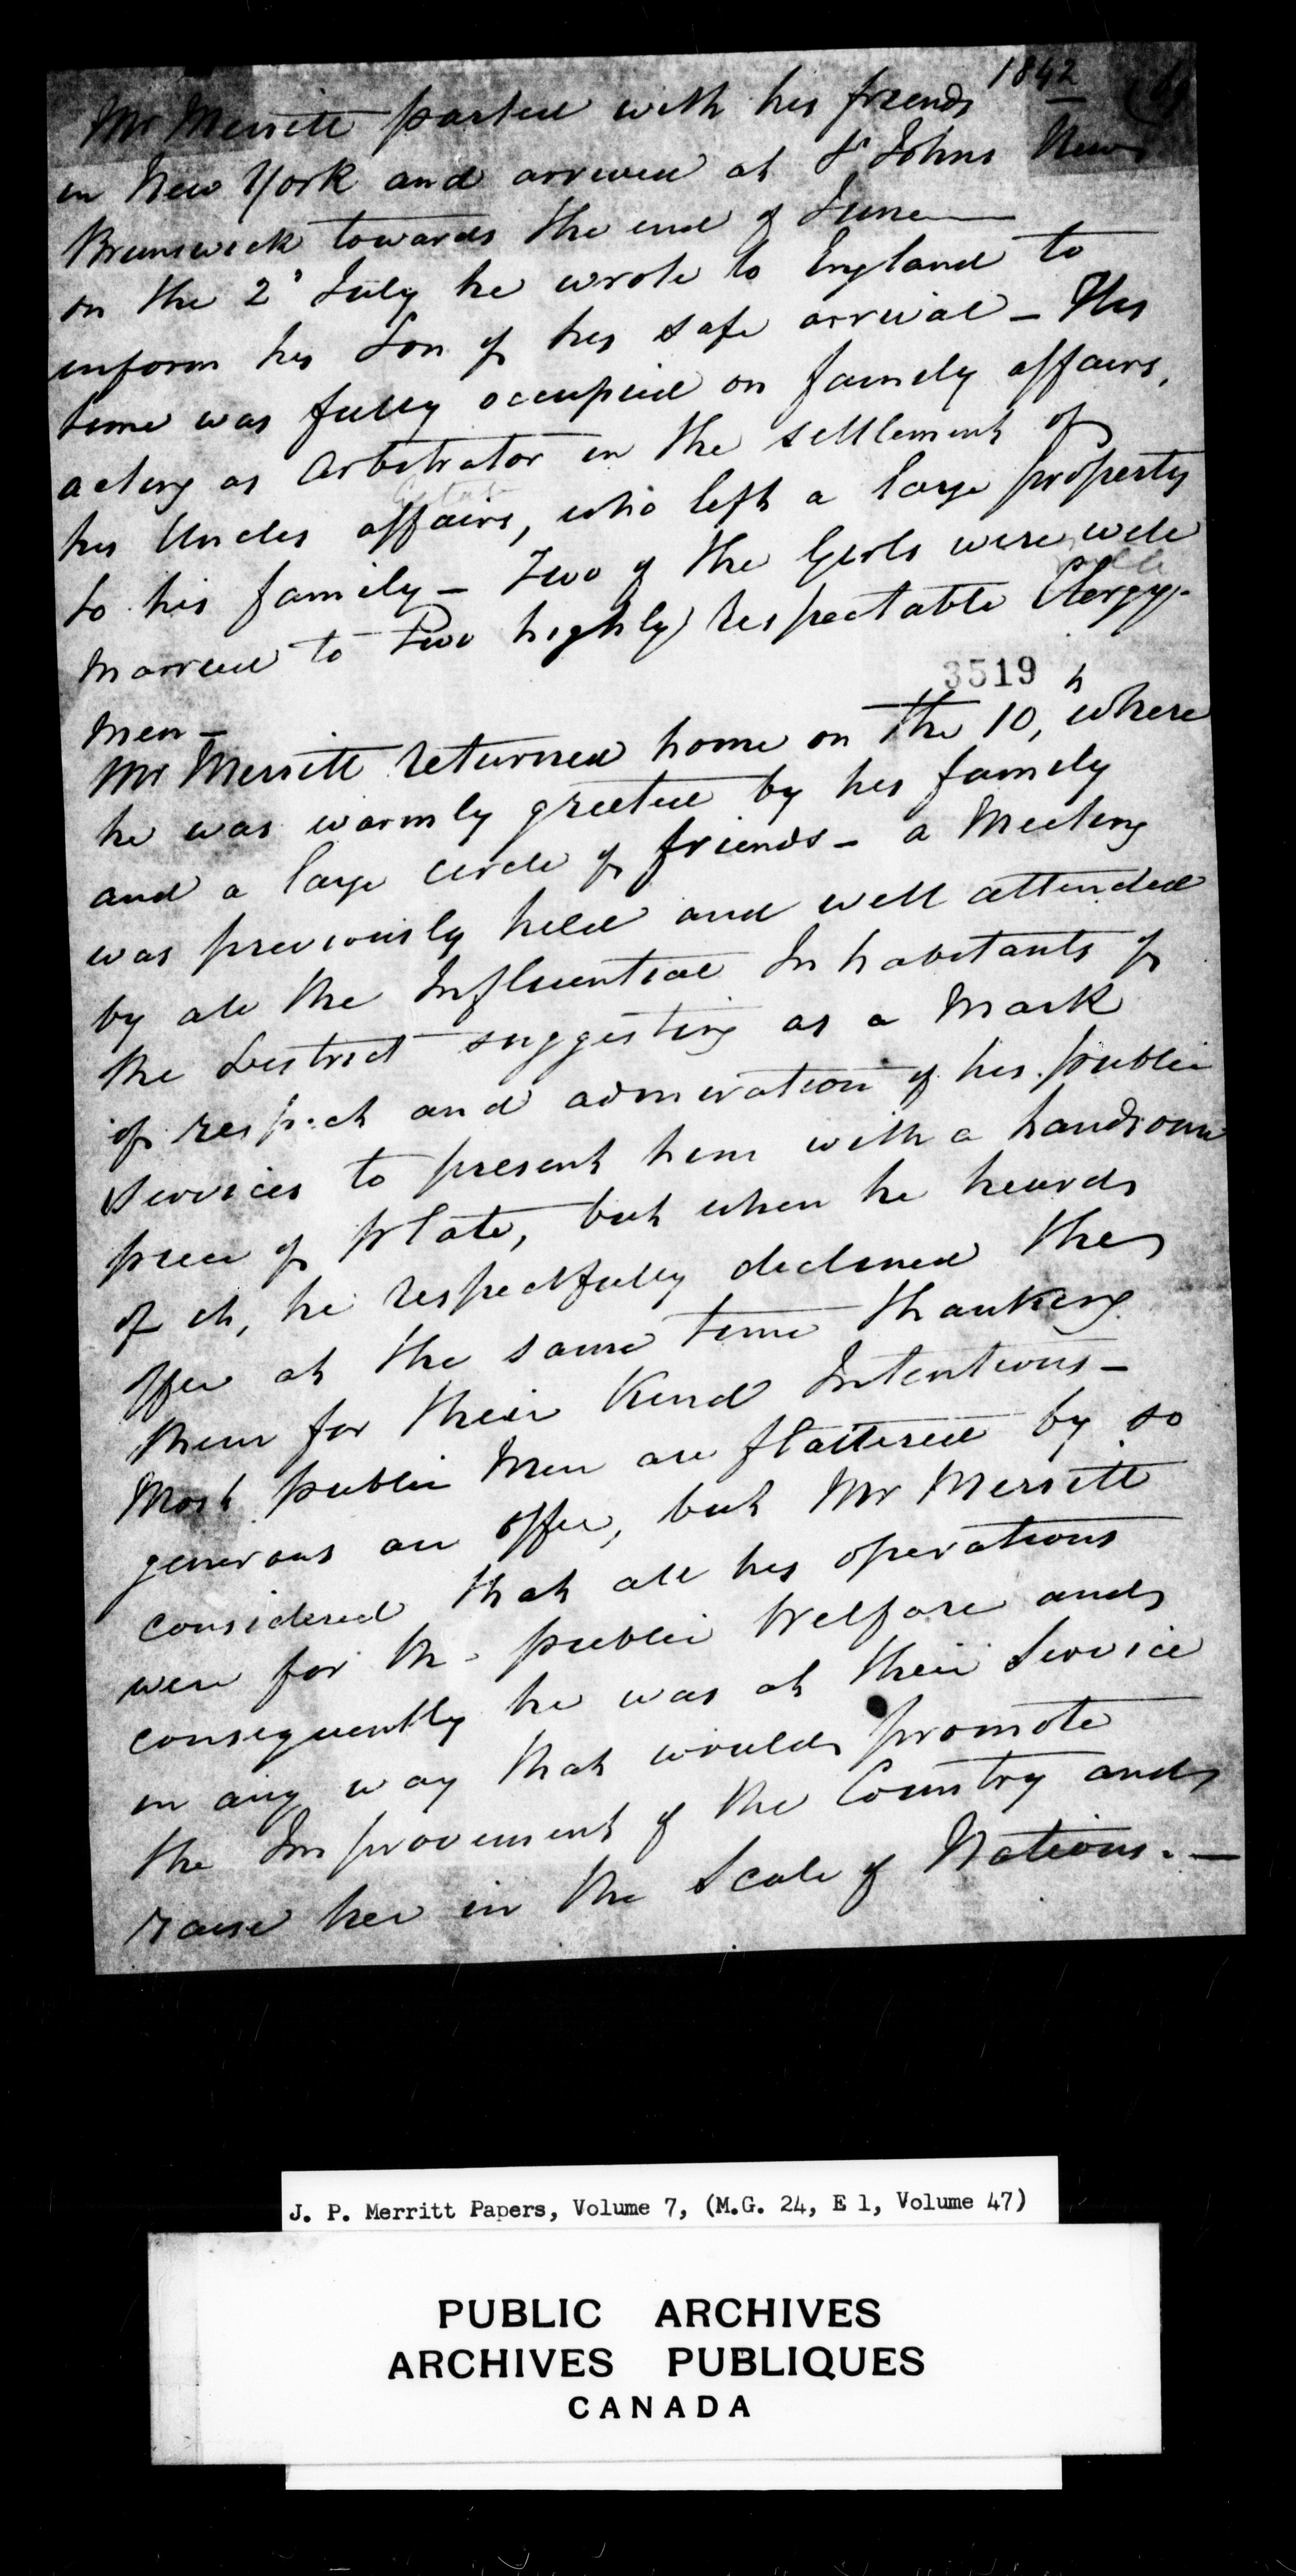 1842
Mr Merritt parted with his friends
in New York and arrived at St Johns New
Brunswick towards the end of June —
on the 2d July he wrote to England to
inform his Son of his safe arrival — His
time was fully occupied on family affairs,
acting as Arbitrator in the settlement of
his Uncles affairs, who left a large property
to his family — Two of the Girls were well
married to two highly respectable Clergy-
3519
men —
Mr Merritt returned home on the 10th, where
he was warmly greeted by his family
and a large circle of friends — a Meeting
was previously held and well attended
by all the Influential Inhabitants of
the District suggesting as a Mark
of respect and admiration of his public
Services to present him with a handsome
piece of Plate, but when he heard
of it, he respectfully declined the
offer at the same time thanking
them for their Kind Intentions —
Most public Men are flattered by so
generous an offer, but Mr Merritt
considered that all his operations
were for the public Welfare and
consequently he was at their Service
in any way that would promote
the Improvement of the Country and
raise her in the Scale of Nations. —
J. P. Merritt Papers, Volume 7, (M.G. 24, E 1, Volume 47)
PUBLIC ARCHIVES
ARCHIVES PUBLIQUES
CANADA